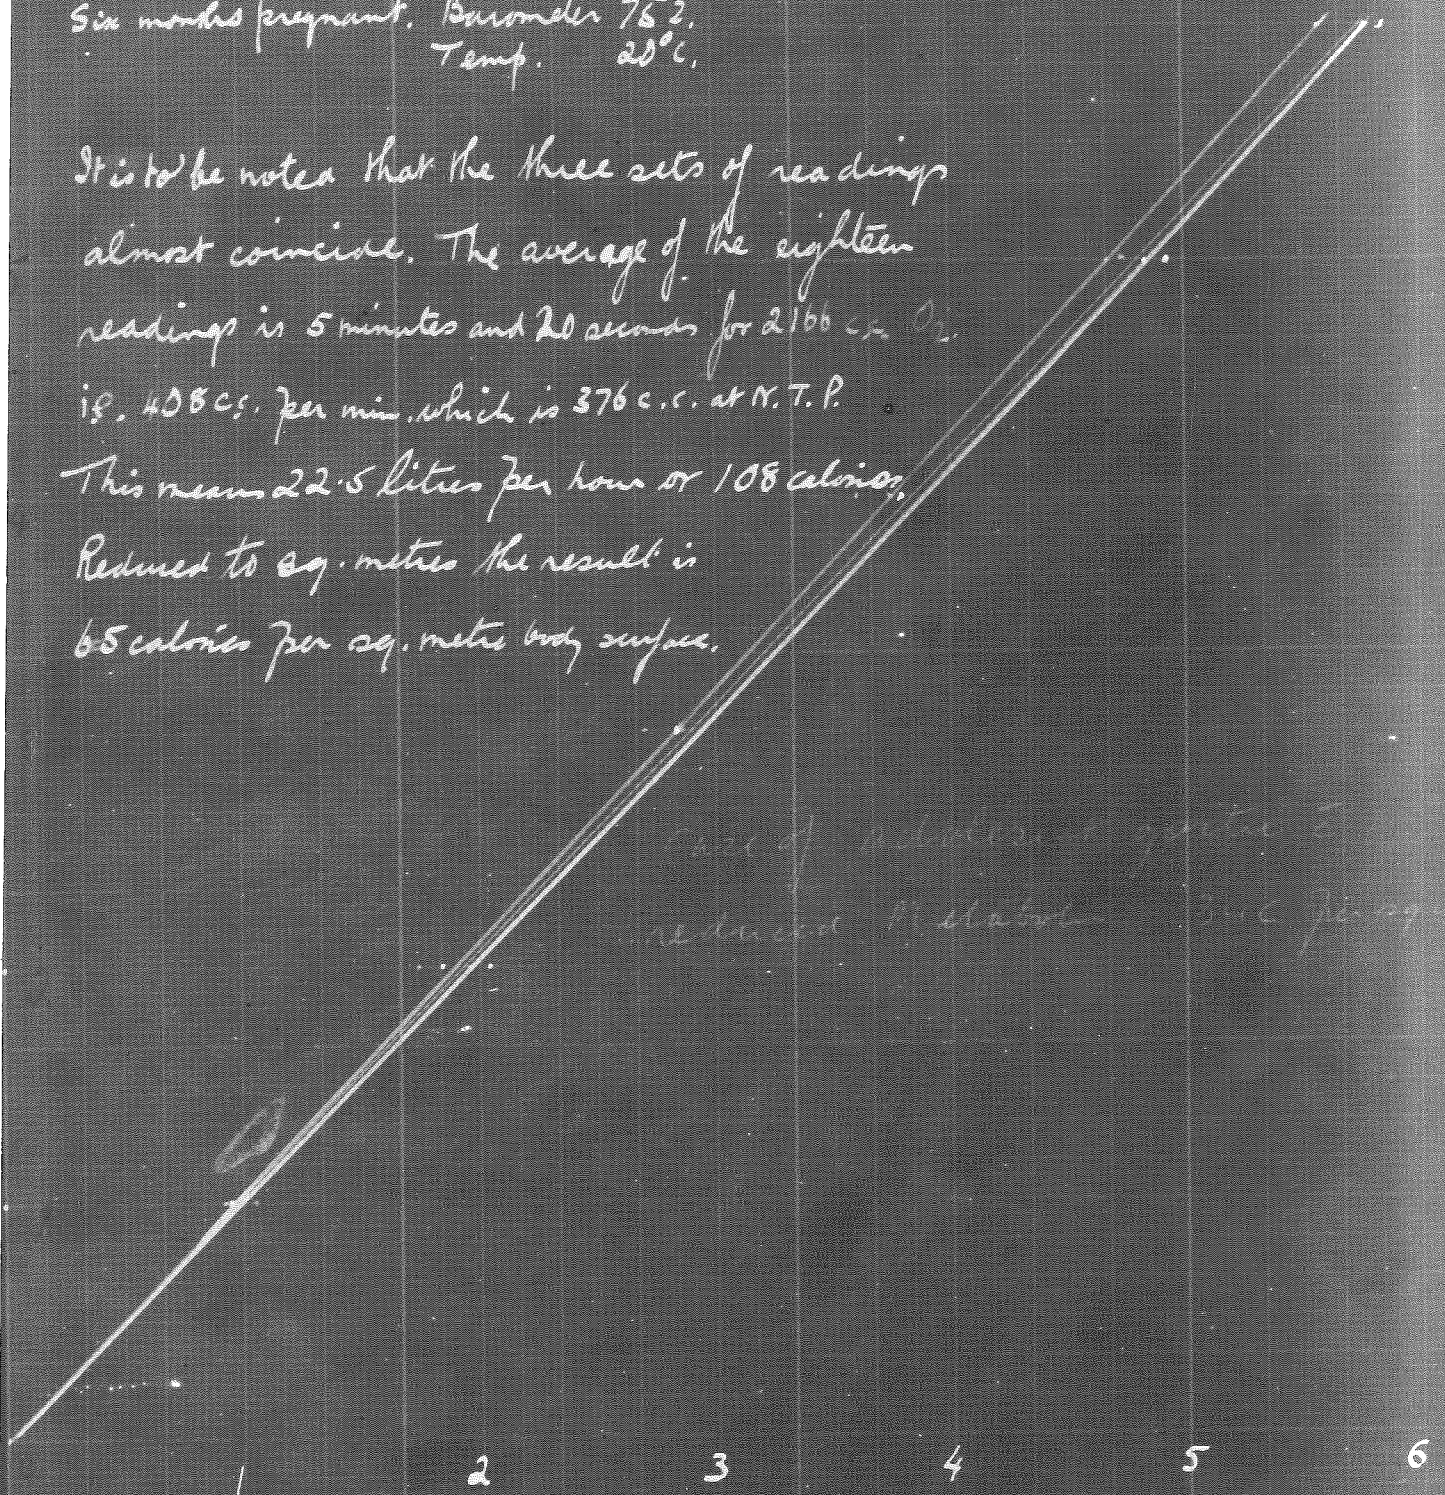 Six months pregnant. Barometer 752.
Temp. 20°C.
It is to be noted that the three sets of readings
almost coincide. The average of the eighteen
readings is 5 minutes and 20 seconds for 2166 c.c.
ie. 408 c.c. per min. which is 376 c.c. at N.T.P.
This means 22.5 litres per hour or 108 calories.
Reduced to sq. metres the result is
65 calories per sq. metre body surface.
reduced
1 2 3 4 5 6